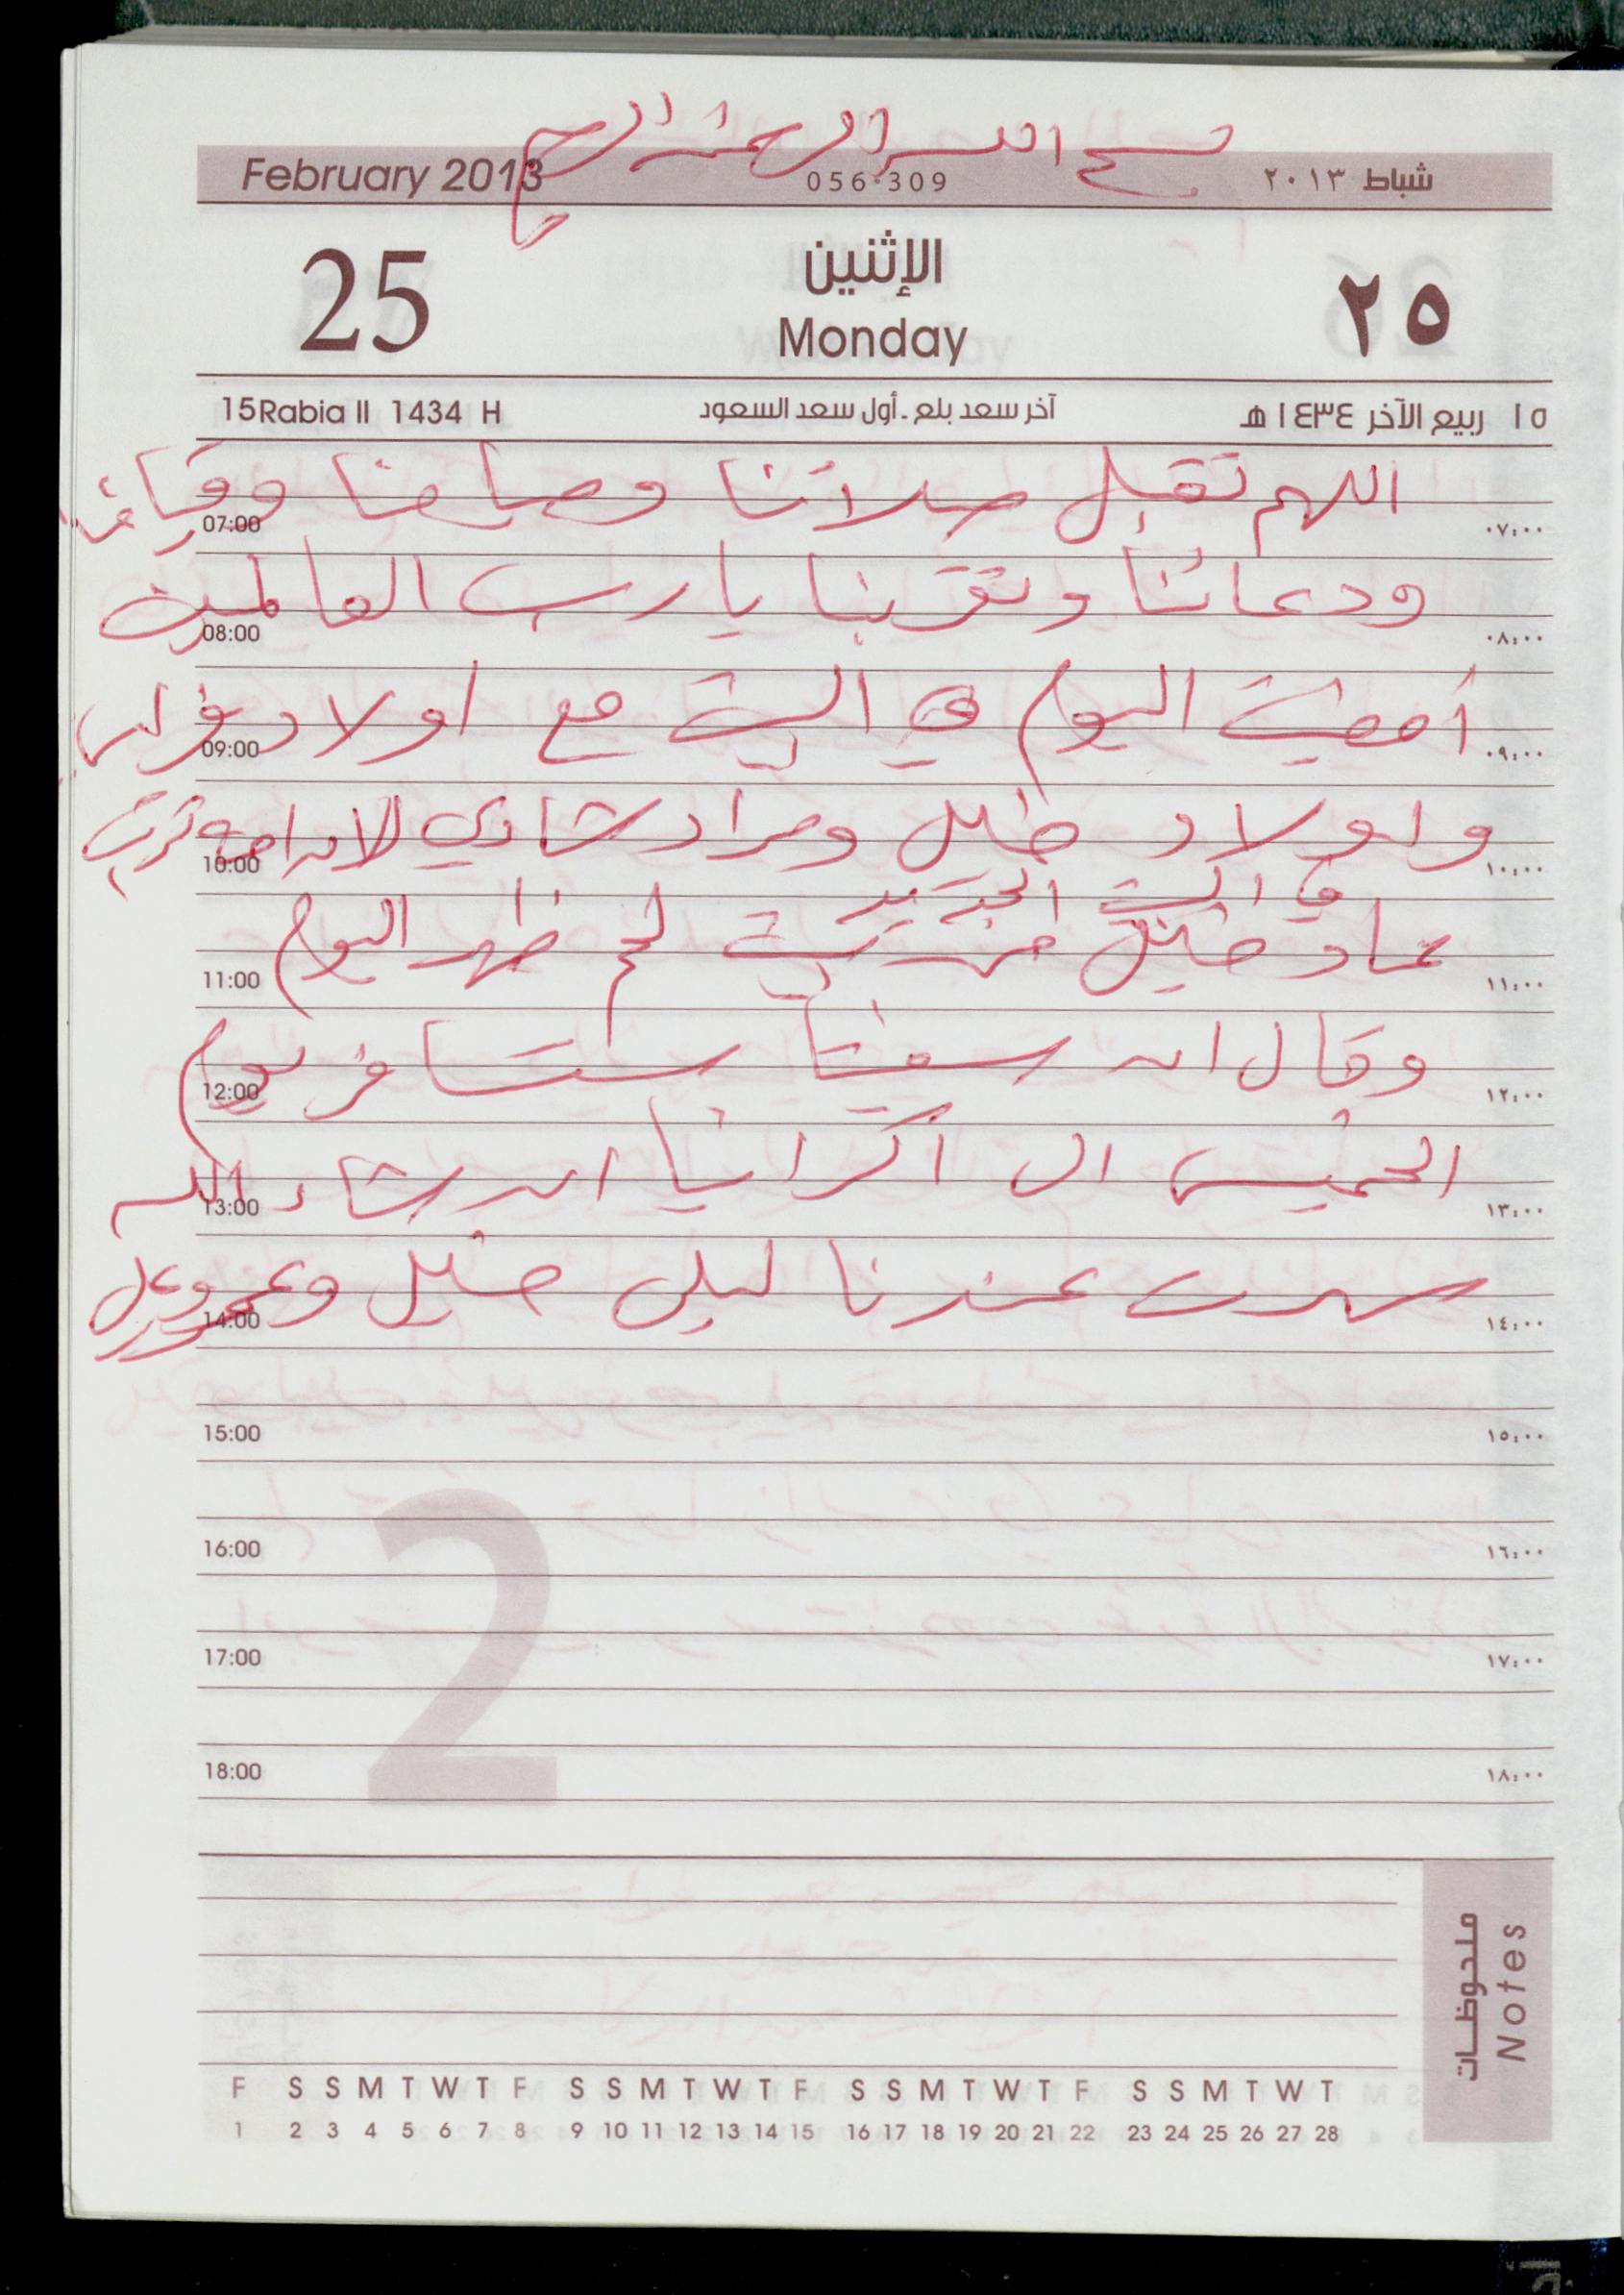 بسم الله الرحمن الرحيم
February 2013 056-309 شباط ٢٠١٣
25 الإثنين ٢٥
Monday
15 Rabia II 1434 H آخر سعد بلع - أول سعد السعود ١٥ ربيع الآخر ١٤٣٤ هـ
اللهم تقبل صلاتنا وصيامنا وقيامنا
07:00 ٠٧:٠٠
ودعائنا وتقربنا يا رب العالمين
08:00 ٠٨:٠٠
أمضيت اليوم في البيت مع اولاد
09:00 ٠٩:٠٠
واولاد خليل ومراد شادي
10:00 ١٠:٠٠
في البيت الجديد
عاد خليل من لحم ظهر اليوم
11:00 ١١:٠٠
وقال ان ستسافر يوم
12:00 ١٢:٠٠
الخميس الى اكرانيا ان شاء الله
13:00 ١٣:٠٠
سهرت عندنا ليلى خليل
14:00 ١٤:٠٠
15:00 ١٥:٠٠
16:00 ١٦:٠٠
2
17:00 ١٧:٠٠
18:00 ١٨:٠٠
ملحوظات
Notes
F S S M T W T F S S M T W T F S S M T W T F S S M T W T
1 2 3 4 5 6 7 8 9 10 11 12 13 14 15 16 17 18 19 20 21 22 23 24 25 26 27 28